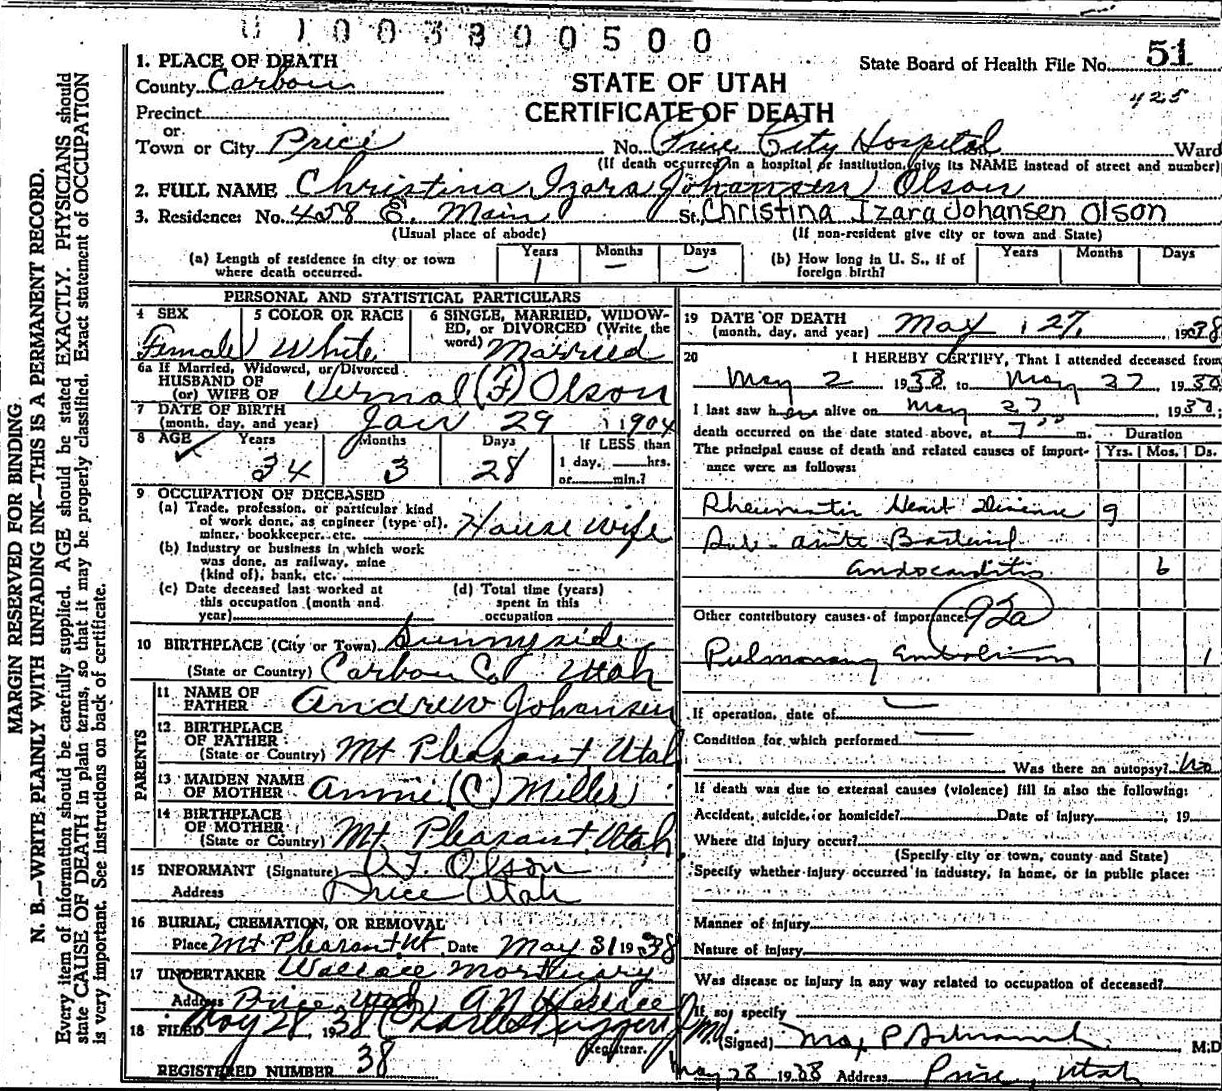 0100390500
1. PLACE OF DEATH
County Carbon
State Board of Health File No. 51
425
STATE OF UTAH
CERTIFICATE OF DEATH
Precinct
or
Town or City Price No. Price City Hospital Ward
(If death occurred in a hospital or institution, give its NAME instead of street and number)
2. FULL NAME Christina Izara Johansen Olson
3. Residence: No. 458 E. Main St. Christina Izara Johansen Olson
(Usual place of abode) (If non-resident give city or town and State)
(a) Length of residence in city or town where death occurred. Years 1 Months — Days —
(b) How long in U. S., if of foreign birth? Years Months Days
PERSONAL AND STATISTICAL PARTICULARS
4 SEX Female
5 COLOR OR RACE White
6 SINGLE, MARRIED, WIDOWED, or DIVORCED (Write the word) Married
6a If Married, Widowed, or Divorced
HUSBAND OF
(or) WIFE OF Vernal (F) Olson
7 DATE OF BIRTH
(month, day, and year) Jan 29 1904
8 AGE Years 34 Months 3 Days 28 If LESS than 1 day, hrs. or min.?
9 OCCUPATION OF DECEASED
(a) Trade, profession, or particular kind of work done, as engineer (type of), miner, bookkeeper, etc. House wife
(b) Industry or business in which work was done, as railway, mine (kind of), bank, etc.
(c) Date deceased last worked at this occupation (month and year)
(d) Total time (years) spent in this occupation
10 BIRTHPLACE (City or Town) Sunnyside
(State or Country) Carbon Co Utah
PARENTS
11 NAME OF FATHER Andrew Johansen
12 BIRTHPLACE OF FATHER
(State or Country) Mt Pleasant Utah
13 MAIDEN NAME OF MOTHER Annie (C) Miller
14 BIRTHPLACE OF MOTHER
(State or Country) Mt Pleasant Utah
15 INFORMANT (Signature) Olson
Address Price Utah
16 BURIAL, CREMATION, OR REMOVAL
Place Mt Pleasant Ut Date May 31 1938
17 UNDERTAKER Wallace Mortuary
Address Price Utah A N Wallace
18 FILED May 28 1938 Charles Ruggeri
Registrar.
REGISTERED NUMBER 38
19 DATE OF DEATH
(month, day, and year) May 27, 1938
20 I HEREBY CERTIFY, That I attended deceased from
May 2 1938 to May 27 1938
I last saw her alive on May 27 1938,
death occurred on the date stated above, at 7 00 m. Duration
The principal cause of death and related causes of importance were as follows: Yrs. Mos. Ds.
Rheumatic Heart Disease 9
Sub-acute Bacterial
endocarditis 6
Other contributory causes of importance: 92a
Pulmonary Embolism 1
If operation, date of
Condition for which performed
Was there an autopsy? No
If death was due to external causes (violence) fill in also the following:
Accident, suicide, or homicide? Date of injury , 19
Where did injury occur?
(Specify city or town, county and State)
Specify whether injury occurred in industry, in home, or in public place:
Manner of injury
Nature of injury
Was disease or injury in any way related to occupation of deceased?
If so, specify
(Signed) M.D
May 28 1938 Address Price, Utah
MARGIN RESERVED FOR BINDING
N. B.—WRITE PLAINLY WITH UNFADING INK—THIS IS A PERMANENT RECORD.
Every item of information should be carefully supplied. AGE should be stated EXACTLY. PHYSICIANS should
state CAUSE OF DEATH in plain terms, so that it may be properly classified. Exact statement of OCCUPATION
is very important. See instructions on back of certificate.